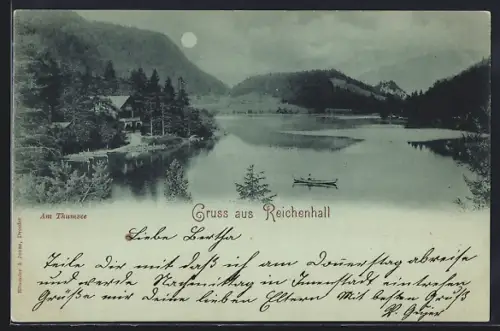 Am Thumsee
Gruss aus Reichenhall
Liebe Bertha
Teile Dir mit daß ich am Donerstag abreise
und werde Nachmittag in Immenstadt eintrefen
Grüße mir deine lieben Eltern Mit besten Gruß
Geyer